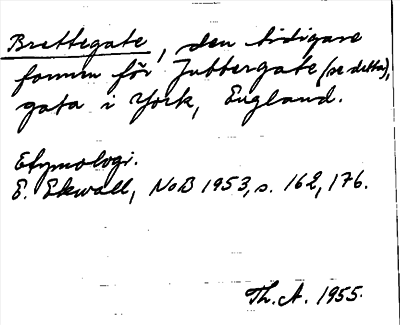 Brettegate, den tidigare
formen för Jubbergate (se detta),
gata i York, England.
Etymologi.
E. Ekwall, NoB 1953, s. 162, 176.
Th. A. 1955.